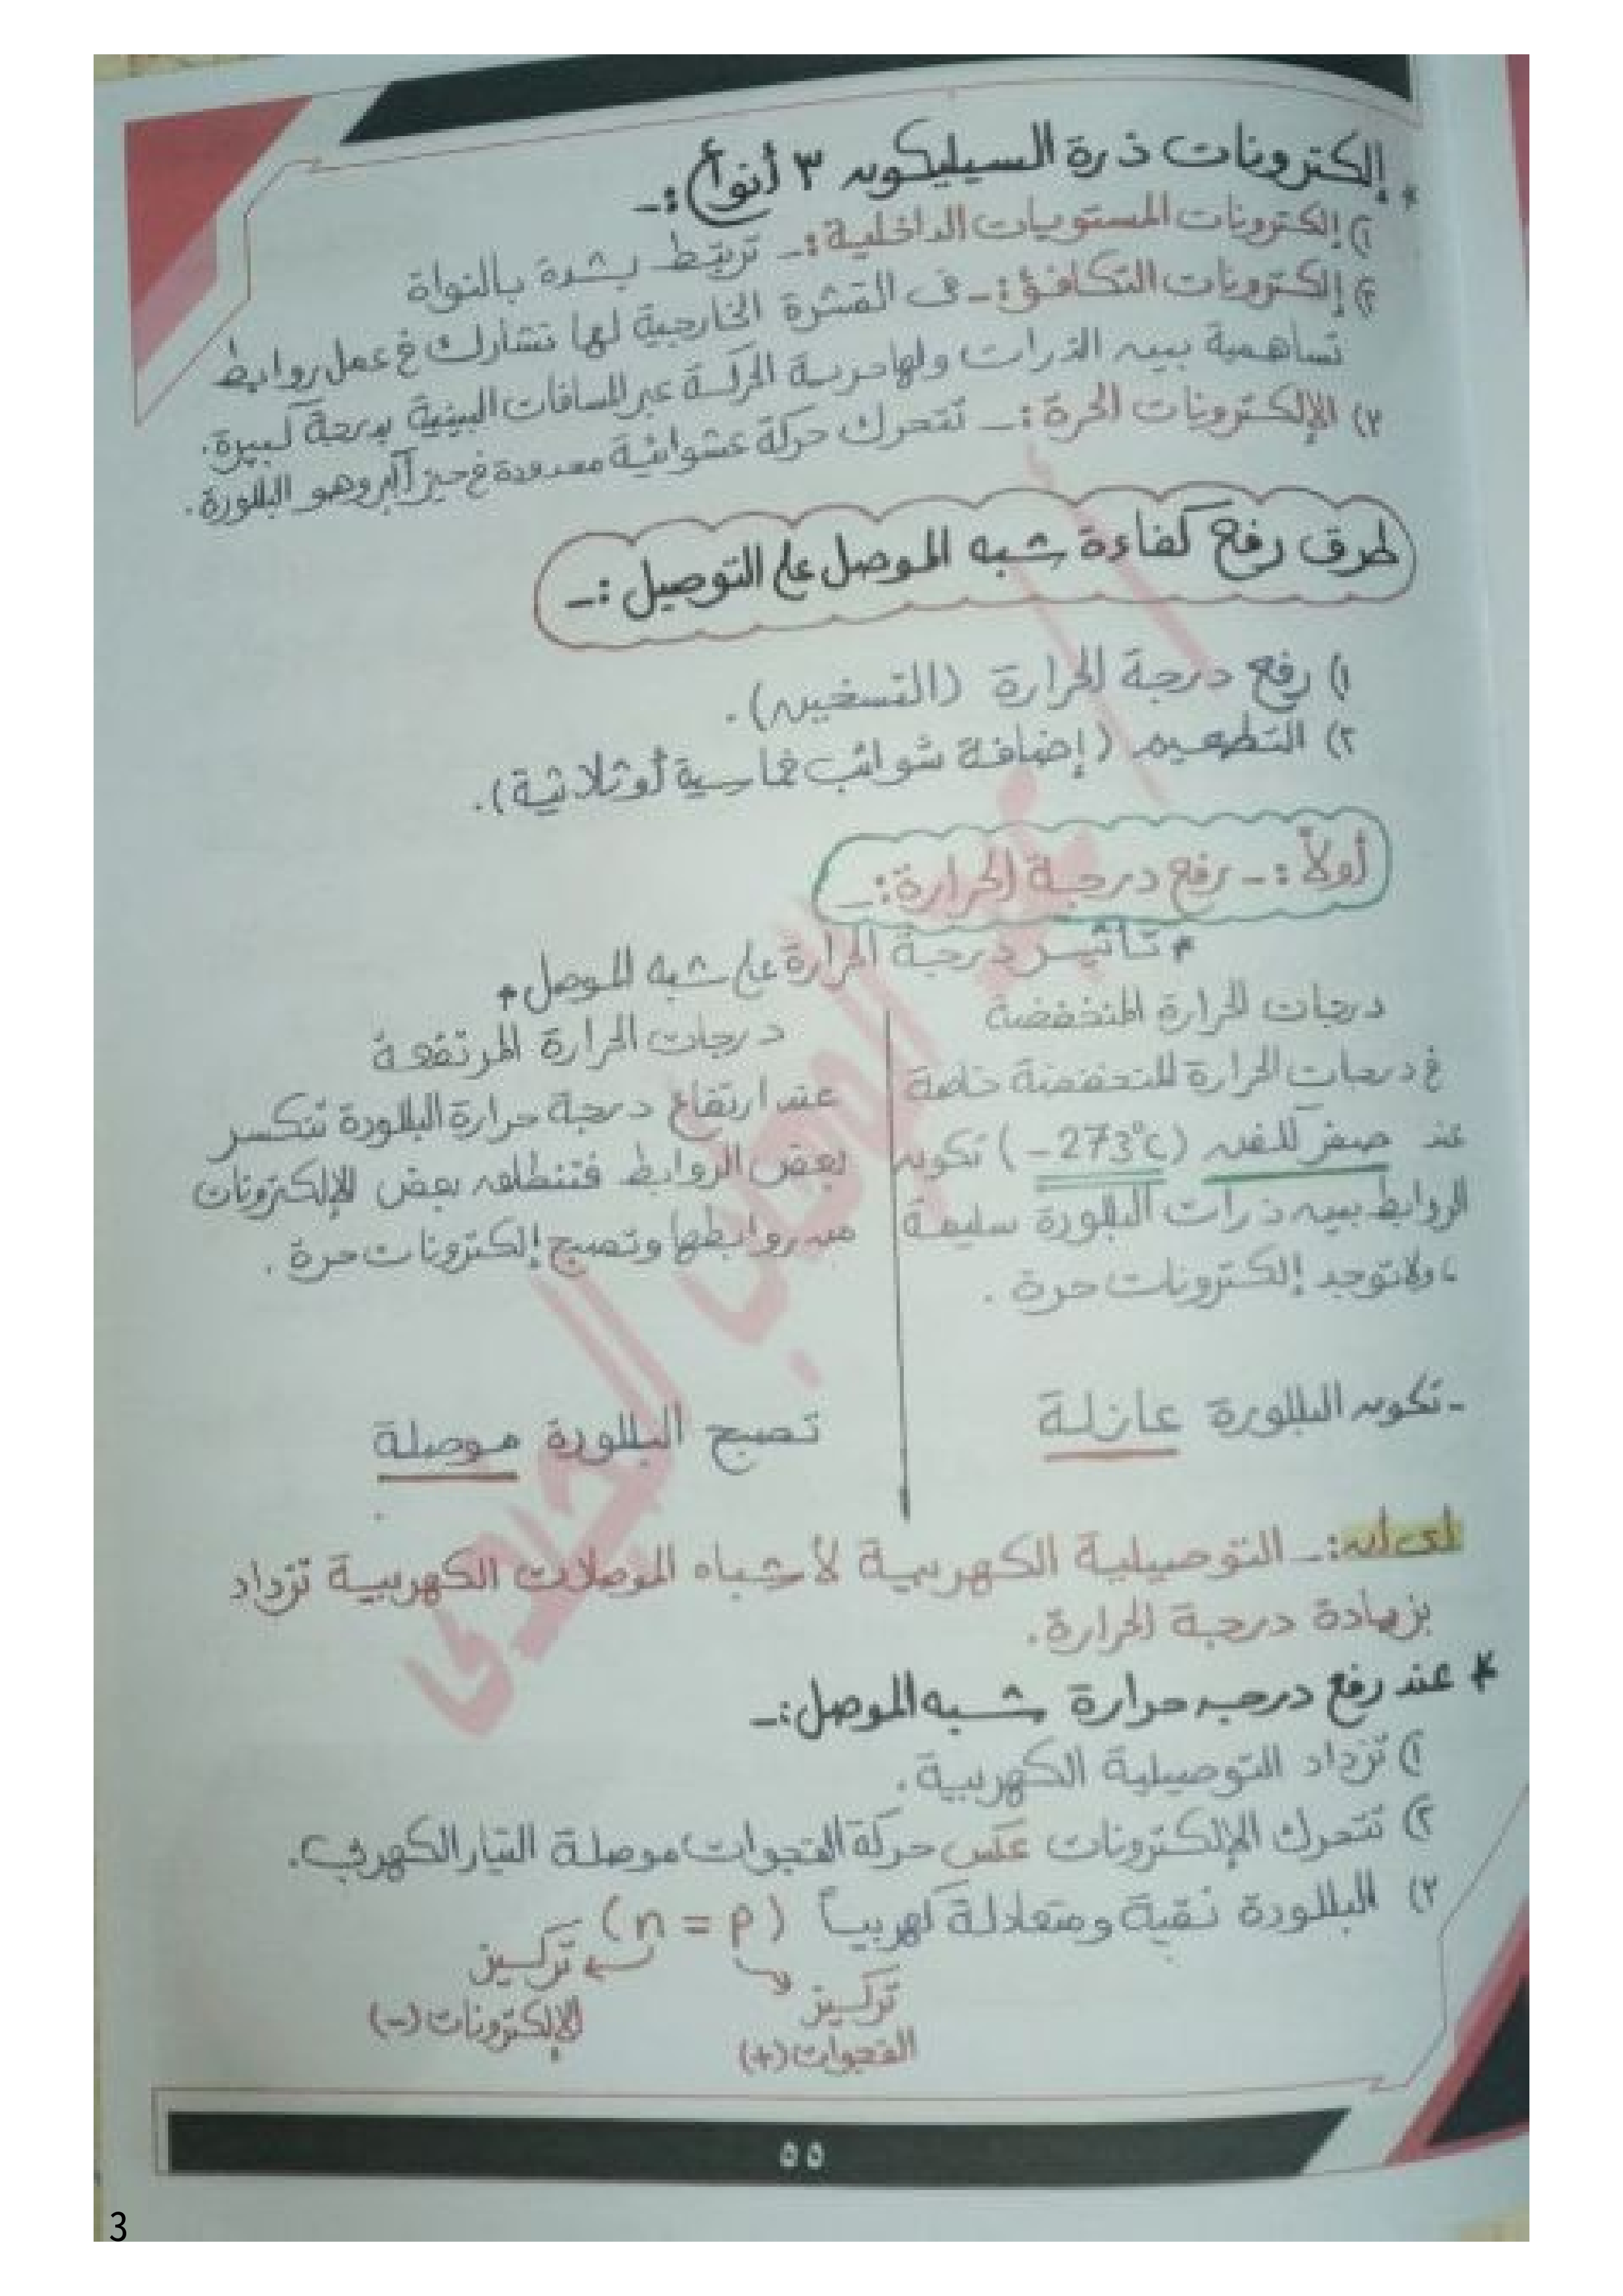 * إلكترونات ذرة السيليكون ٣ أنواع :-
١) إلكترونات المستويات الداخلية :- ترتبط بشدة بالنواة
٢) إلكترونات التكافؤ :- فى القشرة الخارجية لها تشارك فى عمل روابط
تساهمية بين الذرات ولها حرية الحركة عبر المسافات البينية بدرجة كبيرة.
٣) الإلكترونات الحرة :- تتحرك حركة عشوائية محدودة فى حيز أكبر وهو البللورة.
طرق رفع كفاءة شبه الموصل على التوصيل :-
١) رفع درجة الحرارة (التسخين).
٢) التطعيم (إضافة شوائب خماسية أو ثلاثية).
أولاً :- رفع درجة الحرارة :-
* تأثير درجة الحرارة على شبه الموصل *
درجات الحرارة المنخفضة
فى درجات الحرارة المنخفضة خاصة
عند صفر كلفن (-273°C) تكون
الروابط بين ذرات البللورة سليمة
، ولا توجد إلكترونات حرة .
- تكون البللورة عازلة
درجات الحرارة المرتفعة
عند ارتفاع درجة حرارة البللورة تتكسر
بعض الروابط فتنطلق بعض الإلكترونات
من روابطها وتصبح إلكترونات حرة .
تصبح البللورة موصلة
أى أن :- التوصيلية الكهربية لأشباه الموصلات الكهربية تزداد
بزيادة درجة الحرارة.
* عند رفع درجه حرارة شبه الموصل :-
١) تزداد التوصيلية الكهربية .
٢) تتحرك الإلكترونات عكس حركة الفجوات موصلة التيار الكهربي.
٣) البللورة نقية ومتعادلة كهربياً (n = p)
تركيز الإلكترونات (-)
تركيز الفجوات (+)
٥٥
3